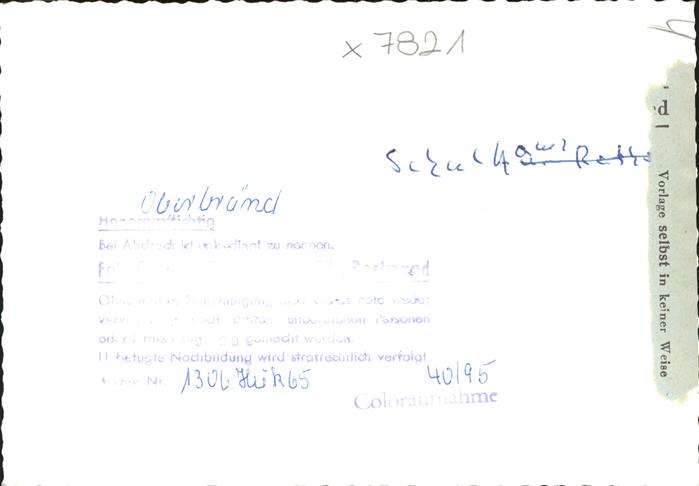 x 7821
d
Schulhaus
Vorlage selbst in keiner Weise
Oberbränd
Honorarpflichtig
Bei Abdruck ist unbedingt zu nennen.
Dortmund
Ohne meine Genehmigung darf dieses Foto weder
vervielfältigt noch dritten unbefugten Personen
oder Firmen zugängig gemacht werden.
Unbefugte Nachbildung wird strafrechtlich verfolgt.
Archiv Nr. 1306 40/95
Coloraufnahme